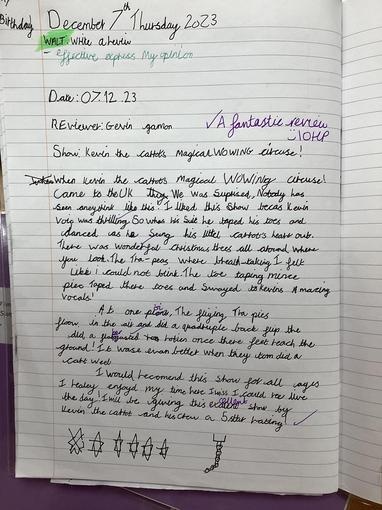 Birthday
December 7th Thursday 2023
WALT: write a review
- effective express My opinion
Date: 07.12.23
REviewer: Gevin gamon
✓A fantastic review
10HP
Show: Kevin the carrot's Magical WOWING circuse!
When Kevin the carrot's Magical WOWING circuse!
Came to the UK We was Suprised, Nobody has
seen aneything like this! I liked this Show becas Kevin
Voic was thrilling. So was his Suit he taped his toes and
danced as he Sung his little carrot's heart out.
There was wonderful christmas trees all around where
you look. The Tra-peas where breath-taking I felt
like I could not blink. The toe taping mince
pies Taped there toes and Swayed to Kevins Amazing
vocals!
At one point, The fliying Tra pies
flow in the air and did a quadruple back flip the
did a rotion once there feet reach the
ground! It wase evan better when they tom did a
cart weel
I would recomend this show for all ages
I realey enjoyed my time here I wiss I could rev live
the day! I will be giving this excellent show by
Kevin the carrot and his crew a 5 star rating ✓